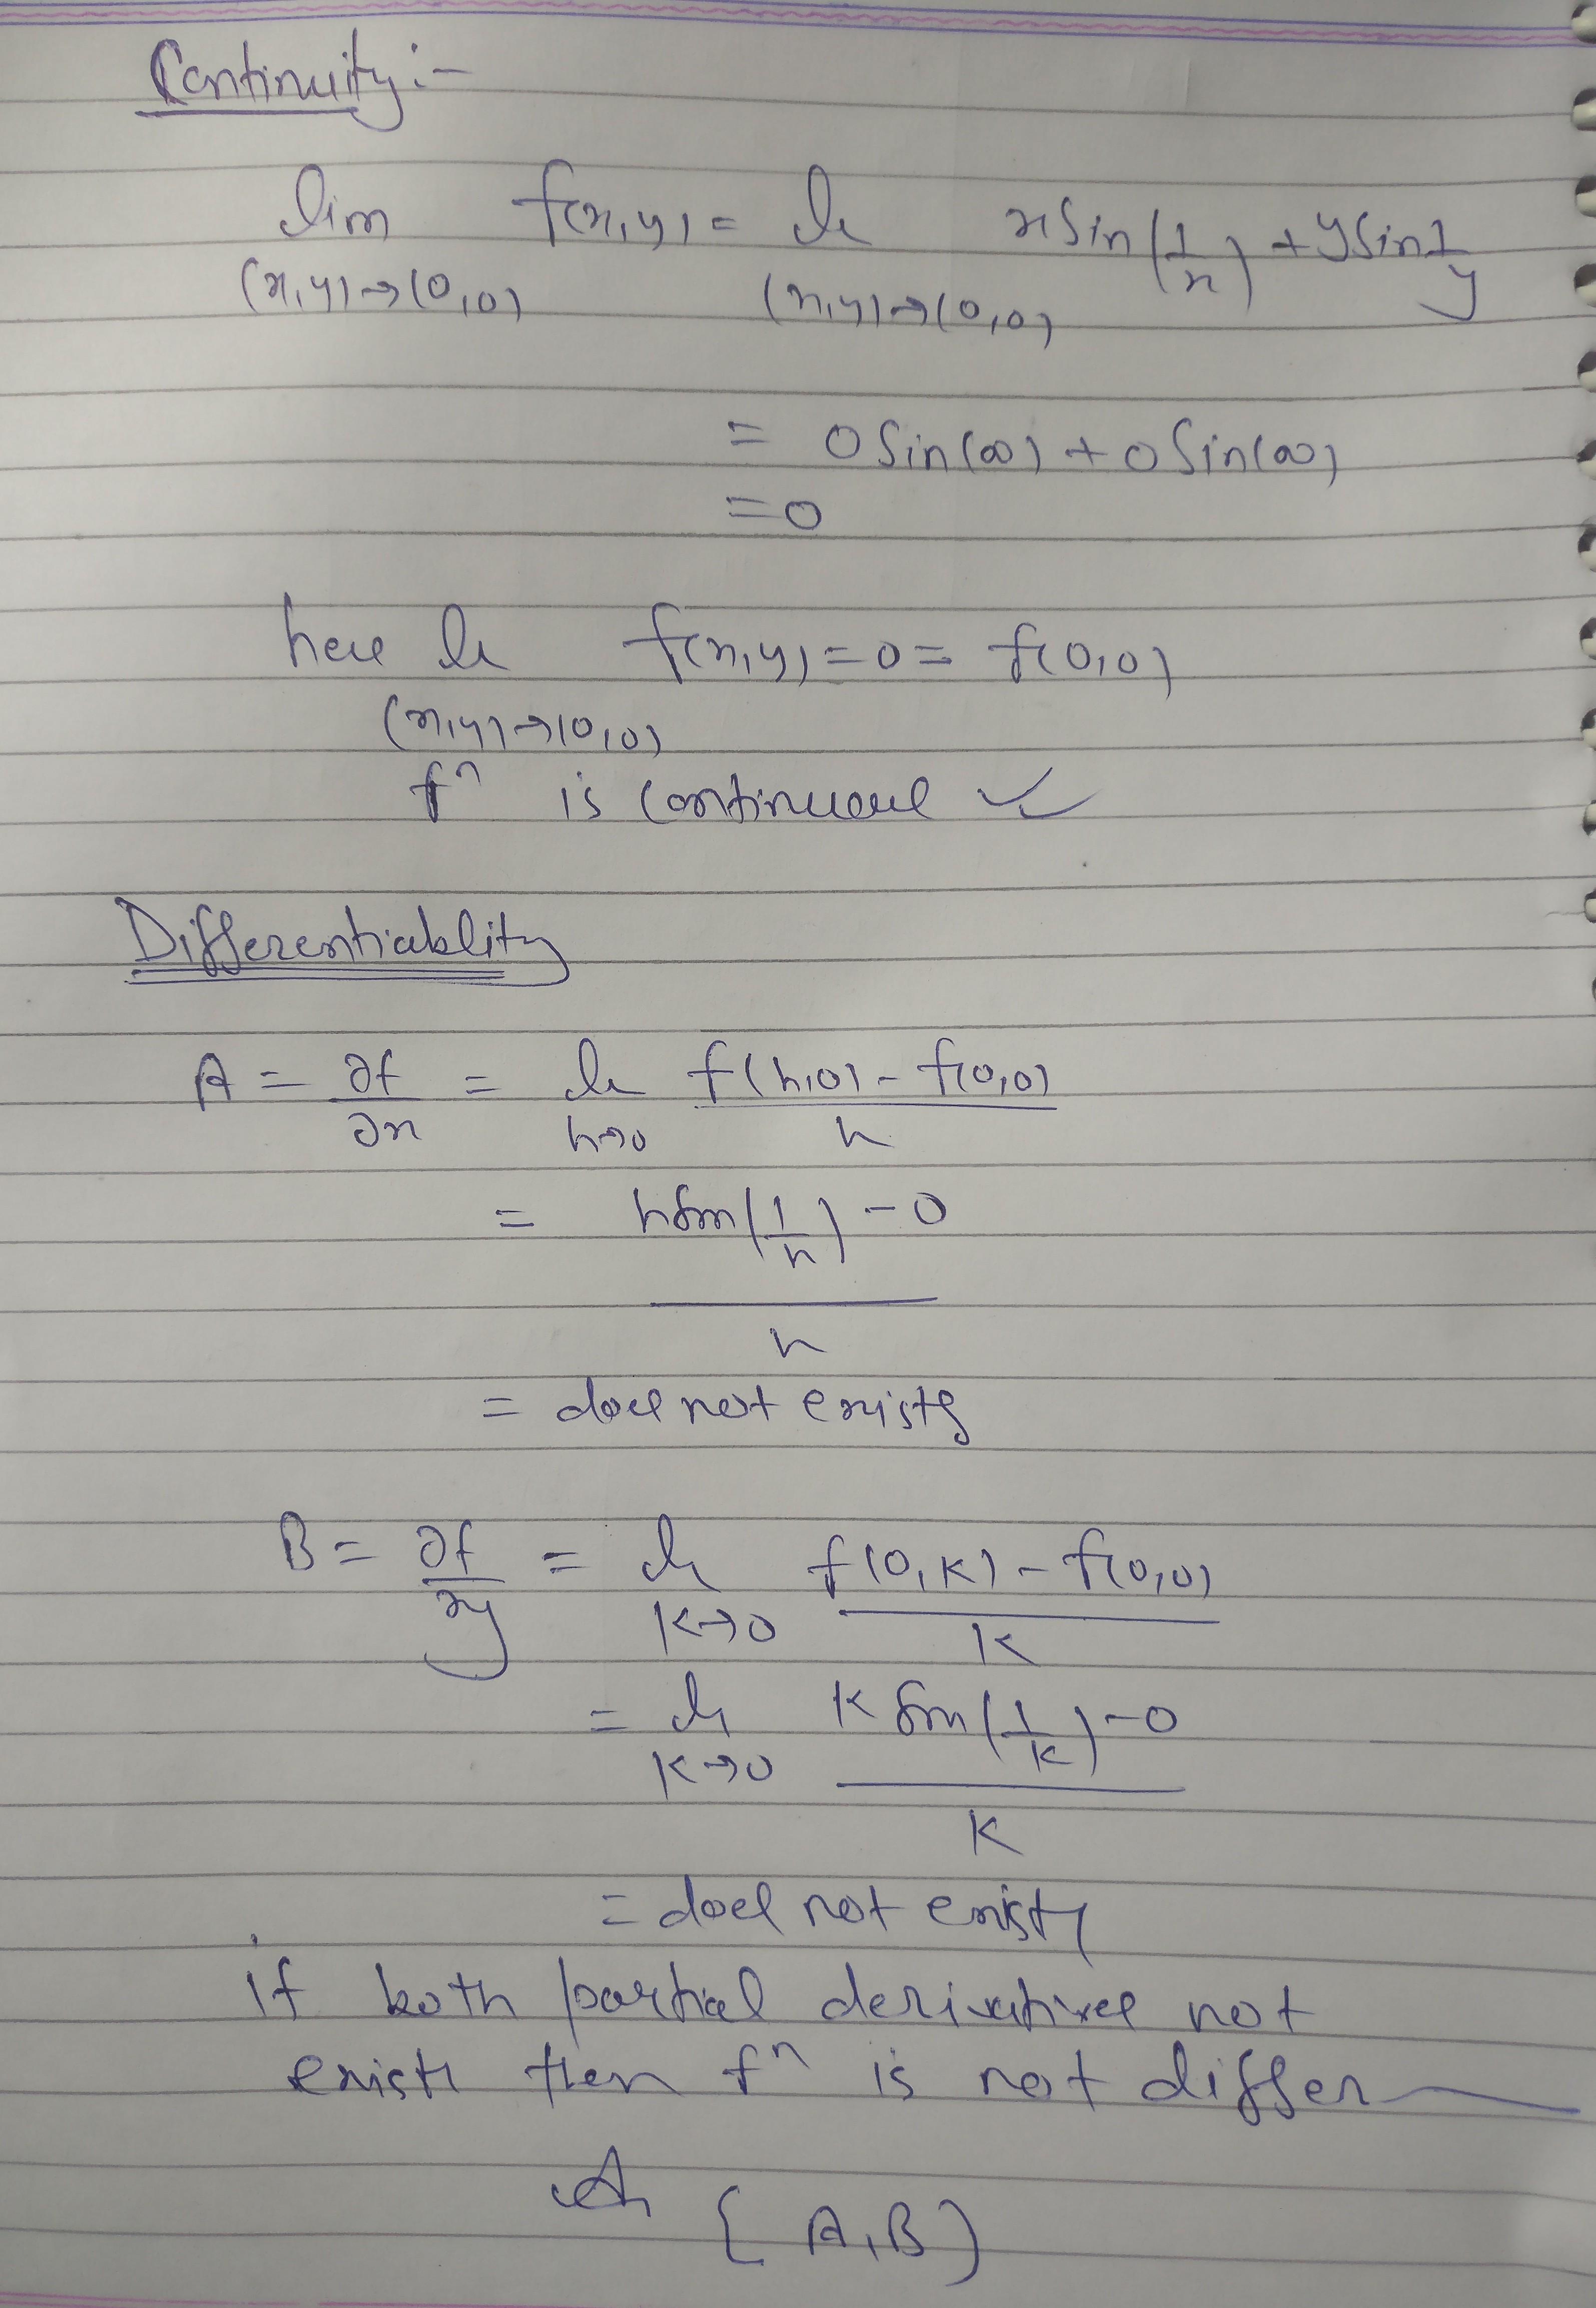 Continuity:-
lim f(x,y) = lt x sin(1/x) + y sin 1/y
(x,y)→(0,0) (x,y)→(0,0)
= 0 sin(∞) + 0 sin(∞)
= 0
here lt f(x,y) = 0 = f(0,0)
(x,y)→(0,0)
fⁿ is continuous ✓
Differentiablity
A = ∂f/∂x = lt h→0 f(h,0) - f(0,0) / h
= h sin(1/h) - 0 / h
= does not exists
B = ∂f/∂y = lt k→0 f(0,k) - f(0,0) / k
= lt k→0 k sin(1/k) - 0 / k
= does not exists
if both partial derivatives not
exists then fⁿ is not differ
{A,B}